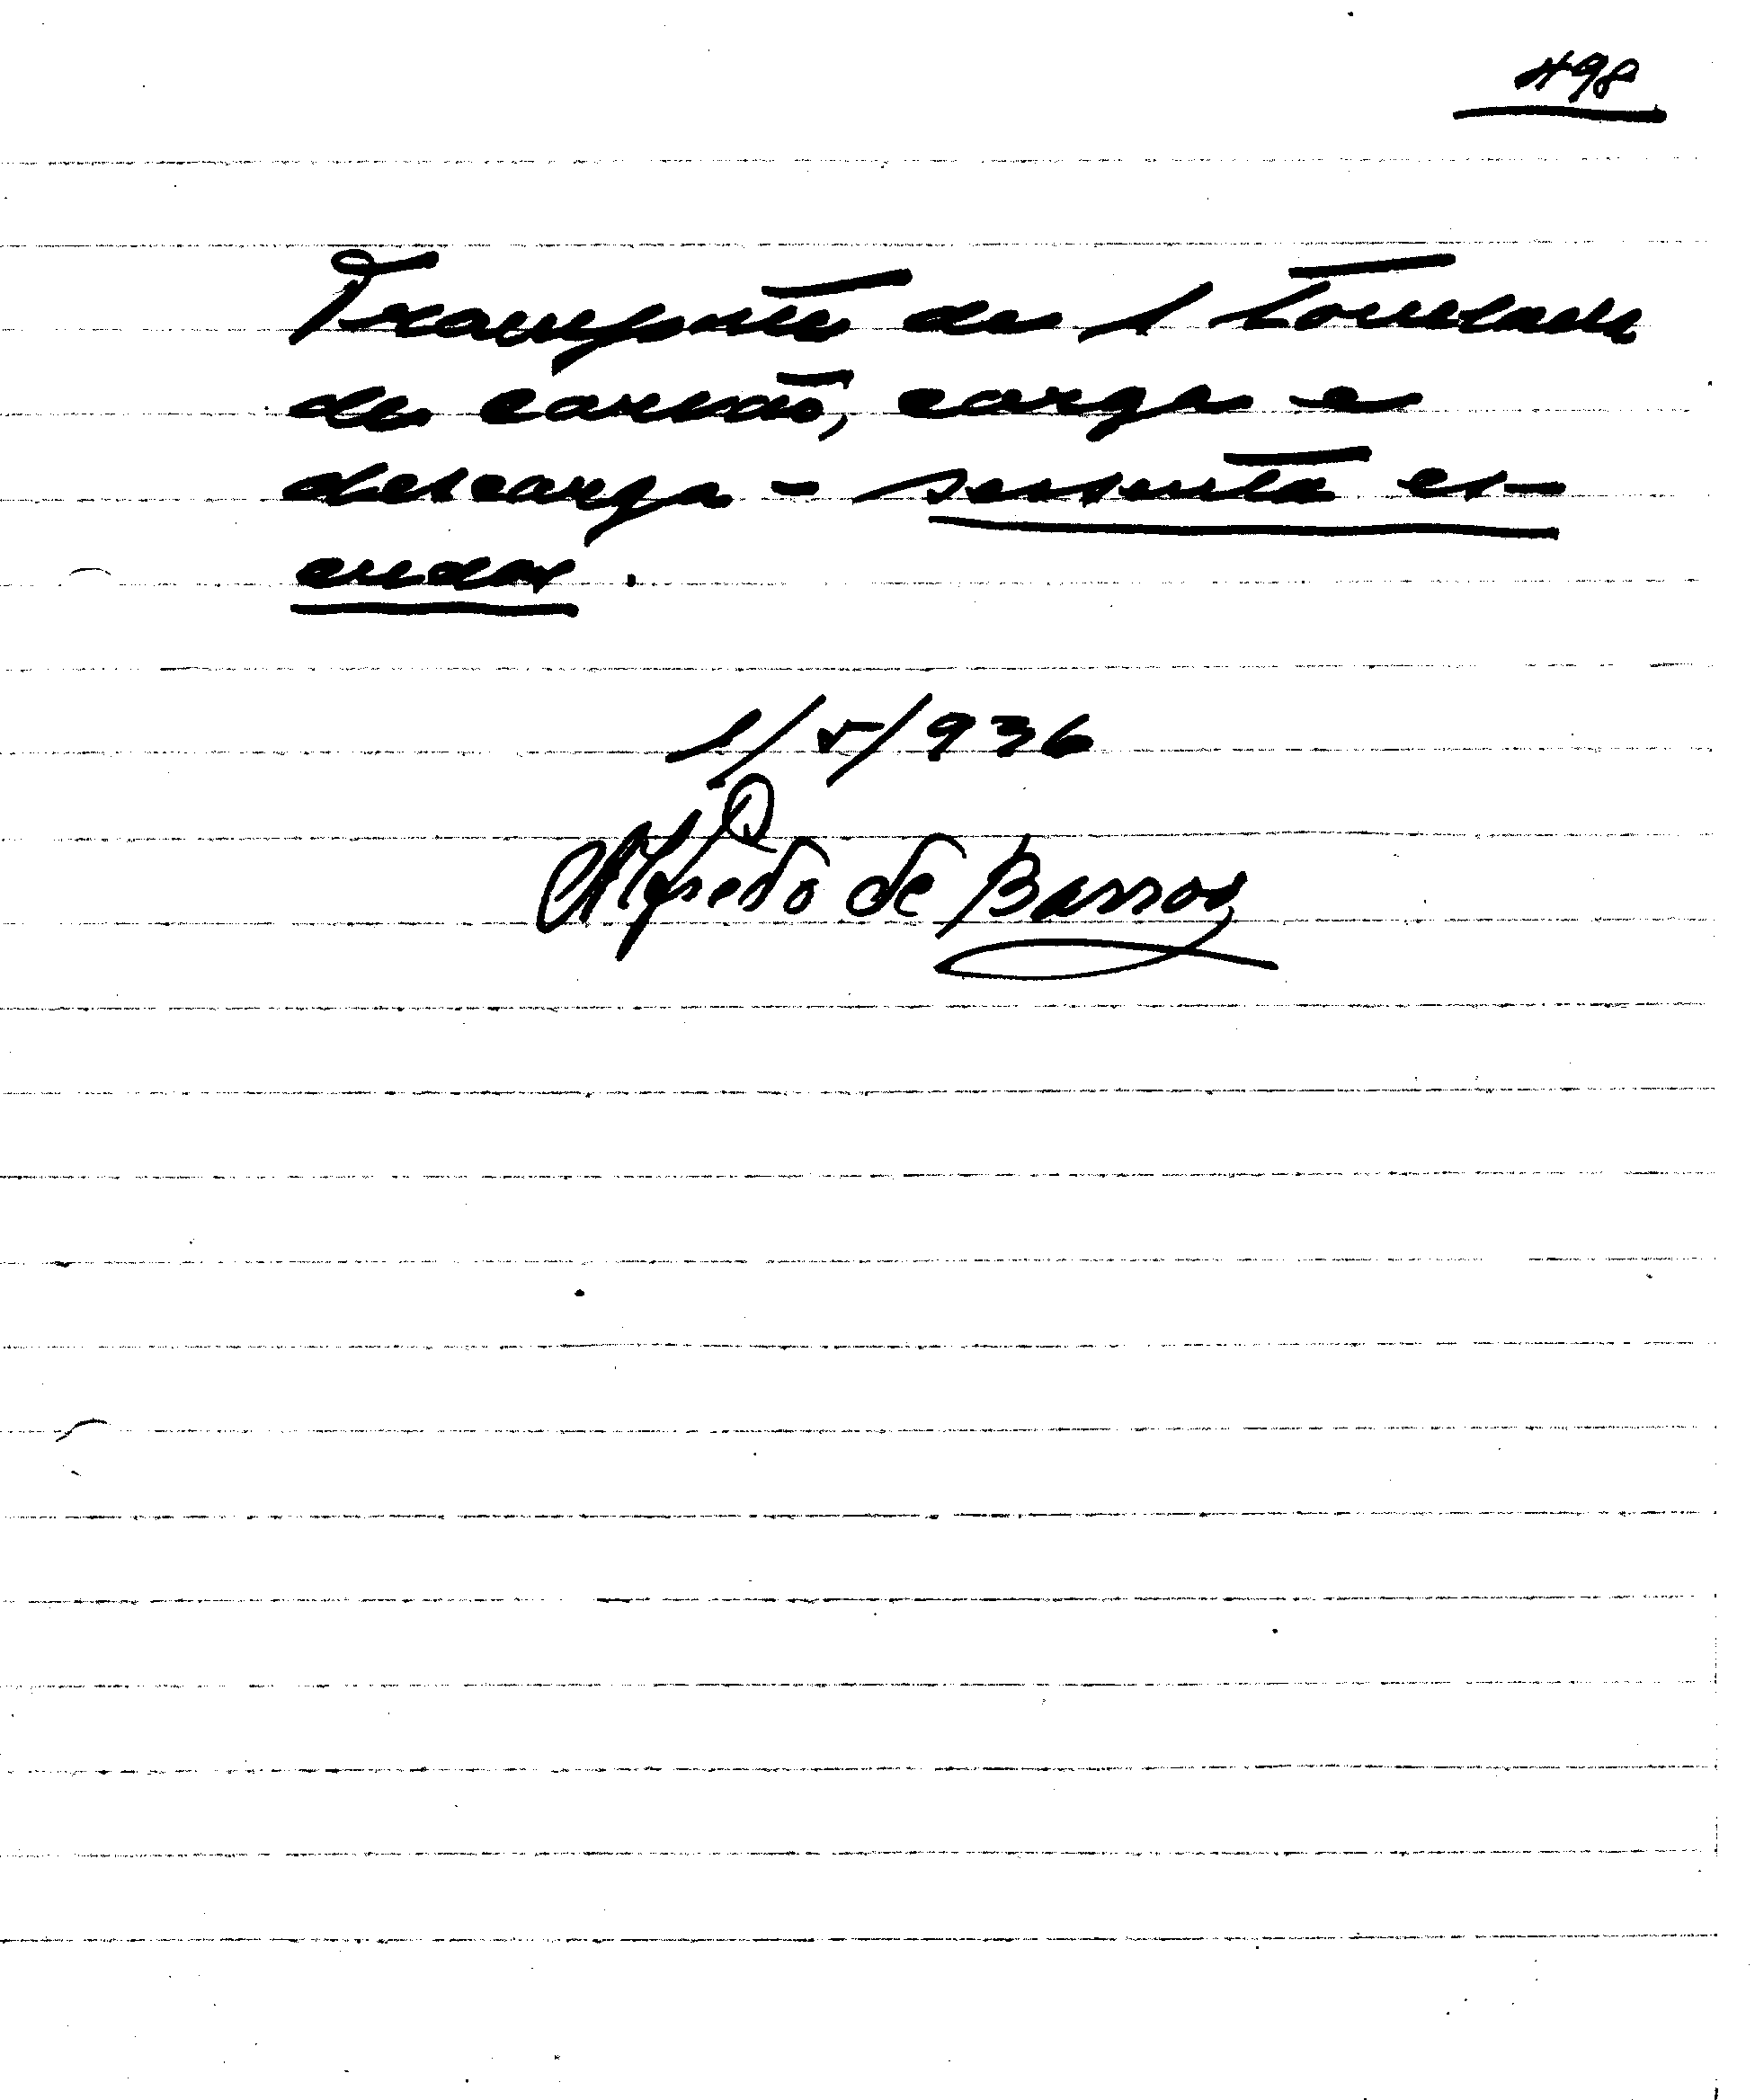 498
Transporte de 1 tonelada
de carvão, carga e
descarga - sessenta es-
cudos.
1/5/936
Alfredo de Barros